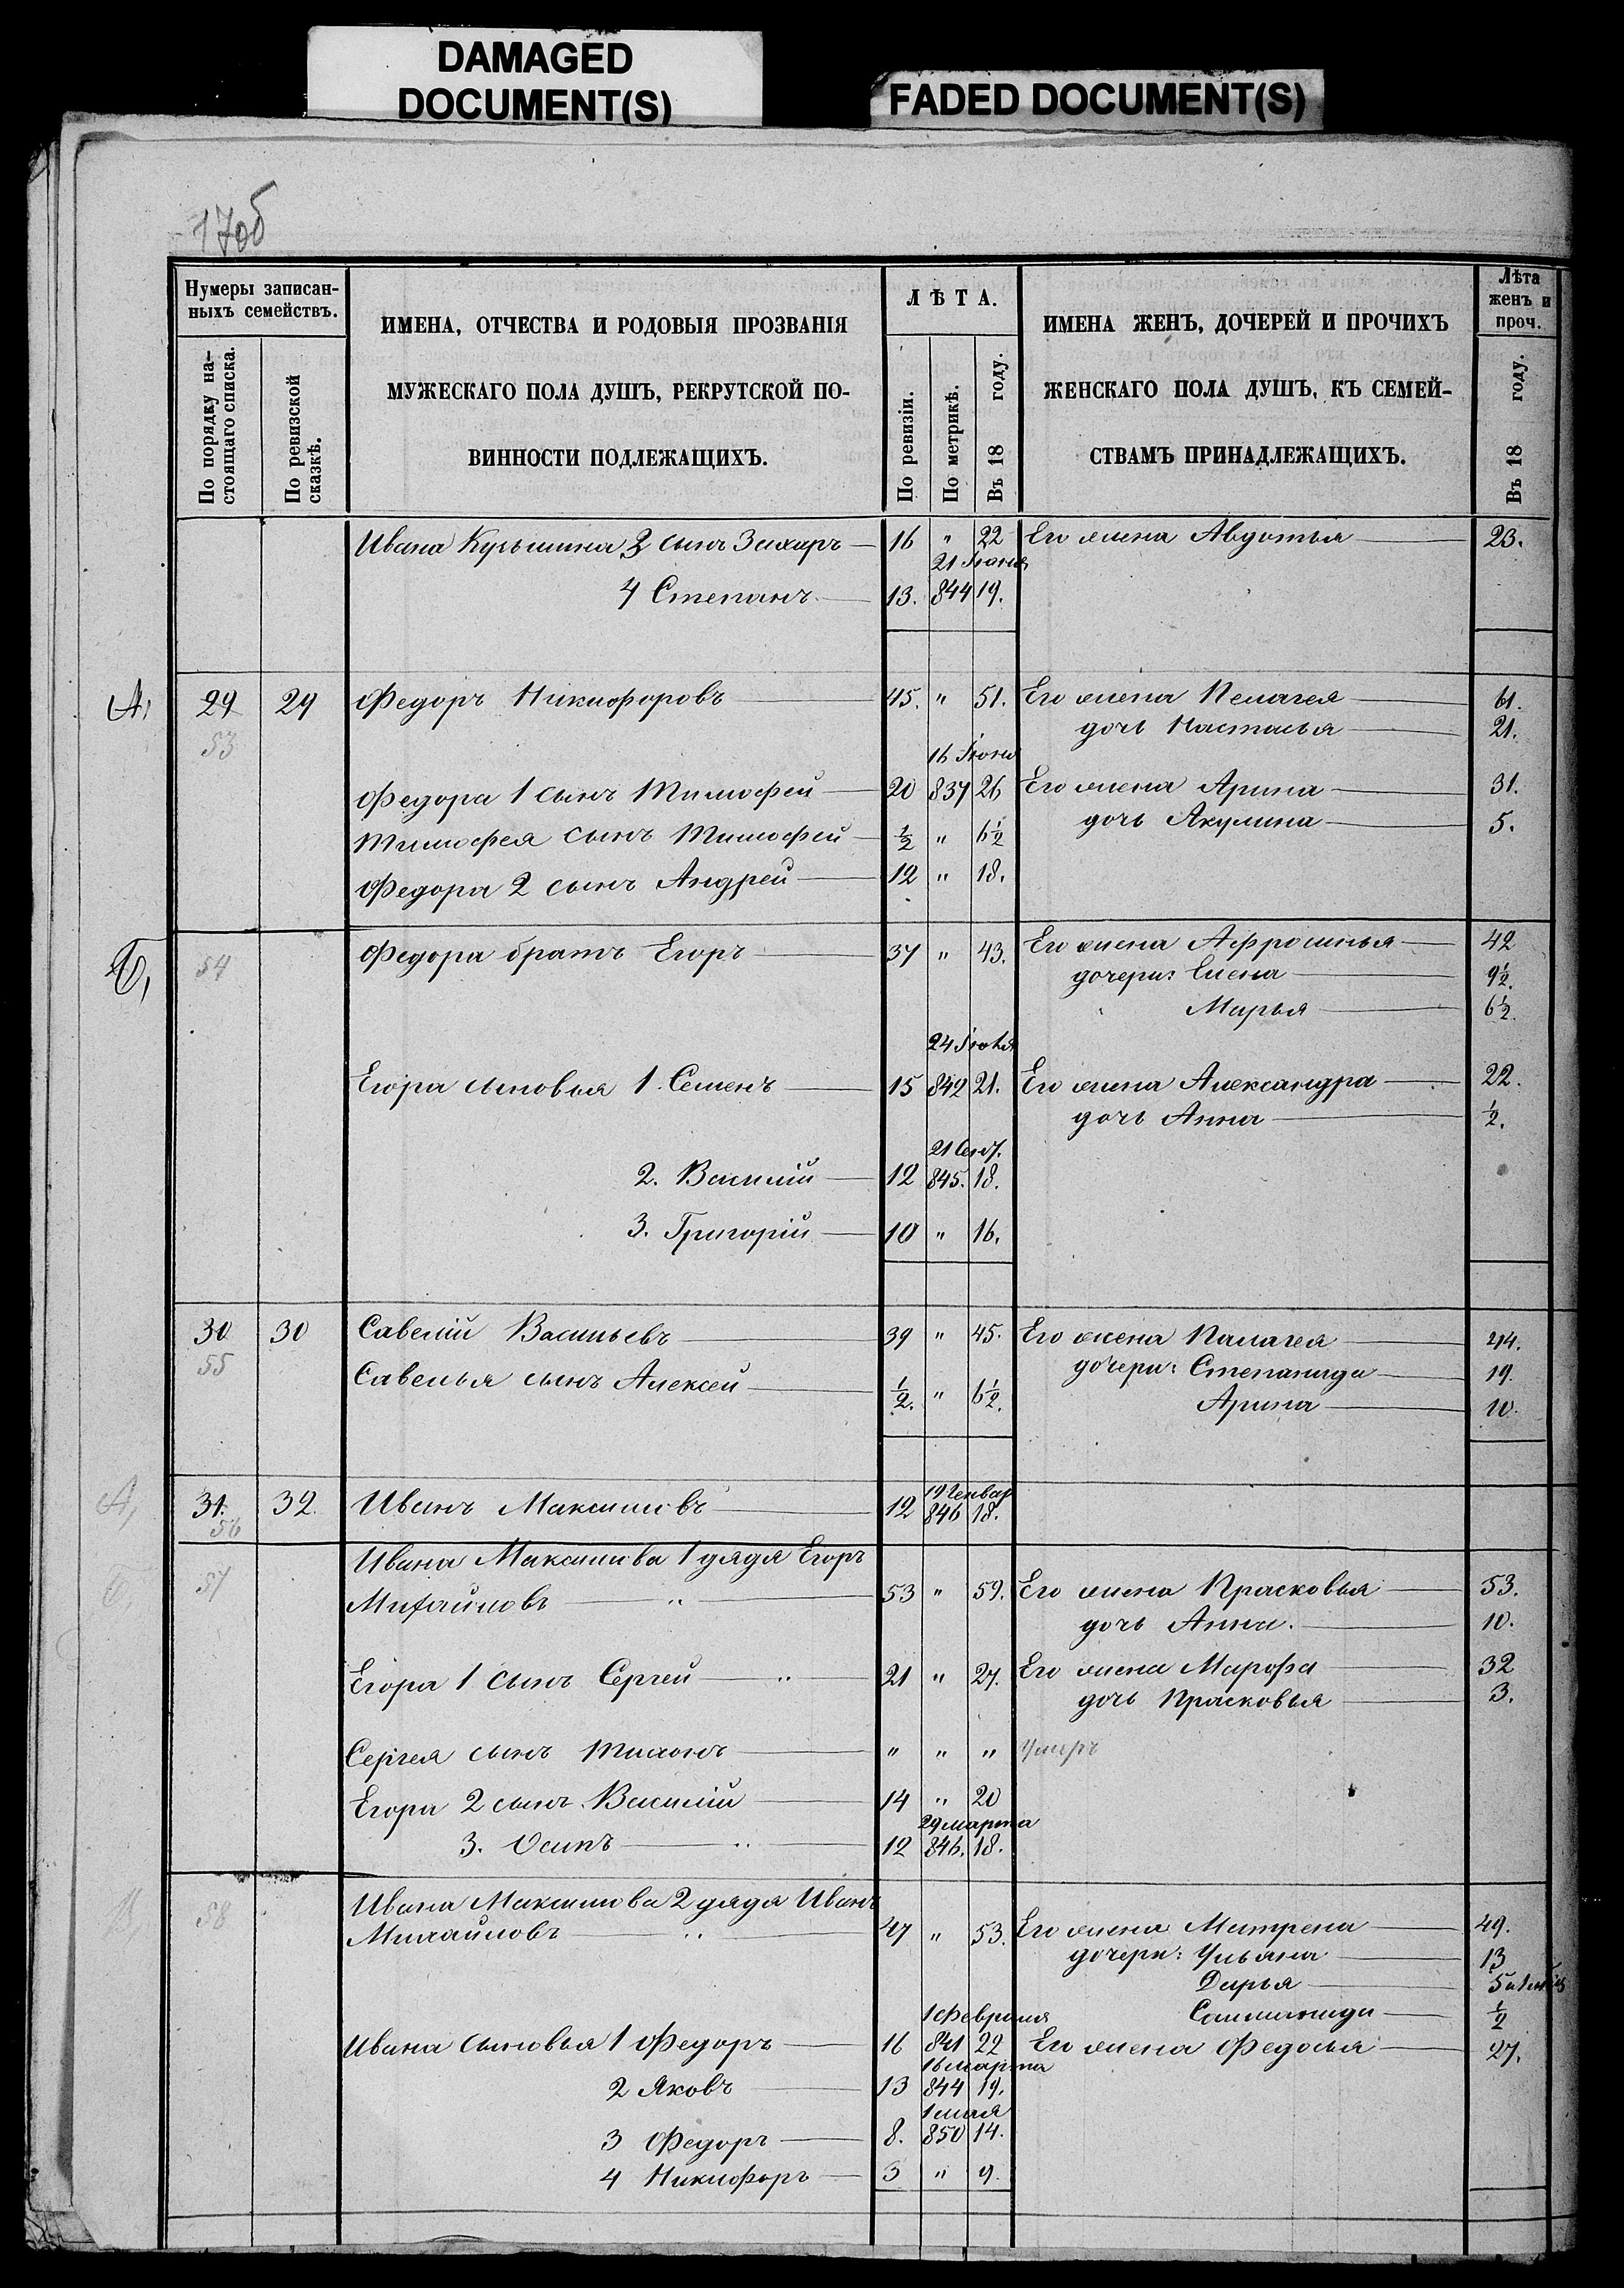 DAMAGED
DOCUMENT(S)
FADED DOCUMENT(S)
17об
Нумеры записан-
ныхъ семействъ.
По порядку на-
стоящаго списка.
По ревизской
сказкѣ.
ИМЕНА, ОТЧЕСТВА И РОДОВЫЯ ПРОЗВАНІЯ
МУЖЕСКАГО ПОЛА ДУШЪ, РЕКРУТСКОЙ ПО-
ВИННОСТИ ПОДЛЕЖАЩИХЪ.
ЛѢТА.
По ревизіи.
По метрикѣ.
Въ 18 году.
ИМЕНА ЖЕНЪ, ДОЧЕРЕЙ И ПРОЧИХЪ
ЖЕНСКАГО ПОЛА ДУШЪ, КЪ СЕМЕЙ-
СТВАМЪ ПРИНАДЛЕЖАЩИХЪ.
Лѣта
женъ и
проч.
Въ 18 году.
Ивана Кузьмина 3 сынъ Захаръ 16 " 22 Его жена Авдотья 23.
21 Іюня
4 Степанъ 13. 844 19.
А, 29 29 Федоръ Никифоровъ 45. " 51. Его жена Пелагея 61.
53 дочь Настасья 21.
16 Іюня
Федора 1 сынъ Тимофей 20 837 26 Его жена Арина 31.
Тимофея сынъ Тимофей ½ " 6½ дочь Акулина 5.
Федора 2 сынъ Андрей 12 " 18.
Б, 54 Федора братъ Егоръ 37 " 43. Его жена Афросинья 42
дочери: Елена 9½.
Марья 6½.
24 Іюня
Егора сыновья 1. Семенъ 15 842 21. Его жена Александра 22.
дочь Анна ½.
21 Сент.
2. Василій 12 845. 18.
3. Григорій 10 " 16.
30 30 Савелій Васильевъ 39 " 45. Его жена Палагея 44.
55 дочери: Степанида 19.
Савелья сынъ Алексей ½. " 6½. Арина 10.
19 Генвар
А, 31. 32. Иванъ Максимовъ 12 846 18.
56
Б, 57 Ивана Максимова 1 дядя Егоръ
Михайловъ " 53 " 59. Его жена Прасковья 53.
дочь Анна. 10.
Егора 1 сынъ Сергей " 21 " 27. Его жена Марфа 32
дочь Прасковья 3.
Сергея сынъ Тихонъ " " " Умеръ
Егора 2 сынъ Василій 14 " 20
29 марта
3. Осипъ " 12 846. 18.
В, 58 Ивана Максимова 2 дядя Иванъ
Михайловъ " 47 " 53. Его жена Матрена 49.
дочери: Ульяна 13
Дарья 5
1 Февраля Соломонида ½
Ивана сыновья 1 Федоръ 16 841 22 Его жена Федосья 27.
16 марта
2 Яковъ 13 844 19.
1 мая
3 Федоръ 8. 850 14.
4 Никифоръ 3 " 9.